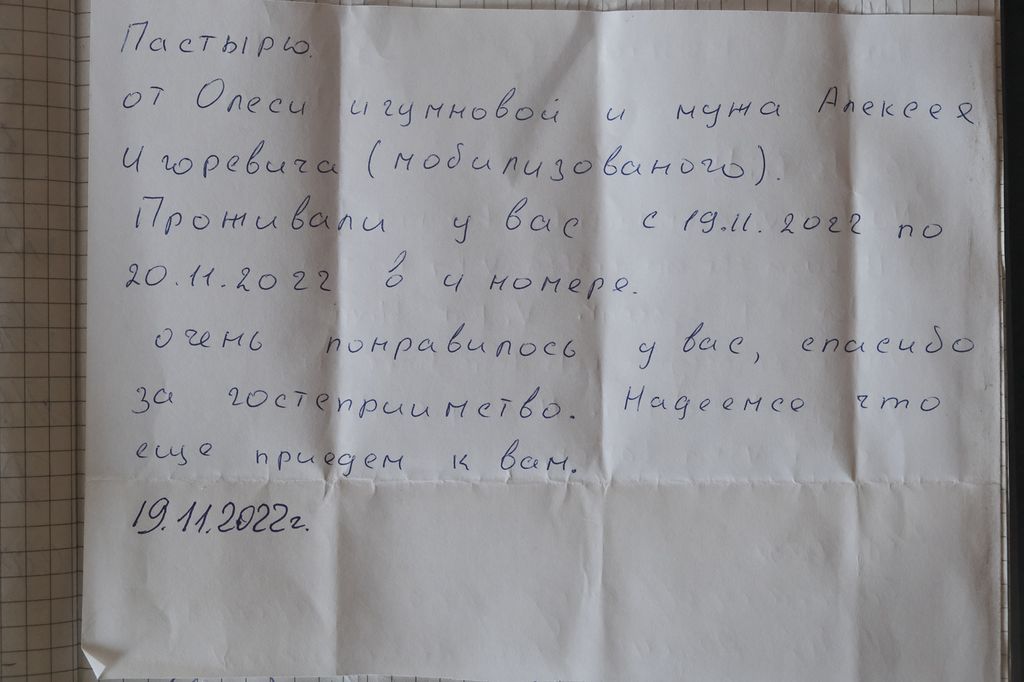 Пастырю.
от Олеси игумновой и мужа Алексея
Игоревича (мобилизованого).
Проживали у вас с 19.11.2022 по
20.11.2022 в 4 номере.
очень понравилось у вас, спасибо
за гостеприимство. Надеемсе что
еще приедем к вам.
19.11.2022г.